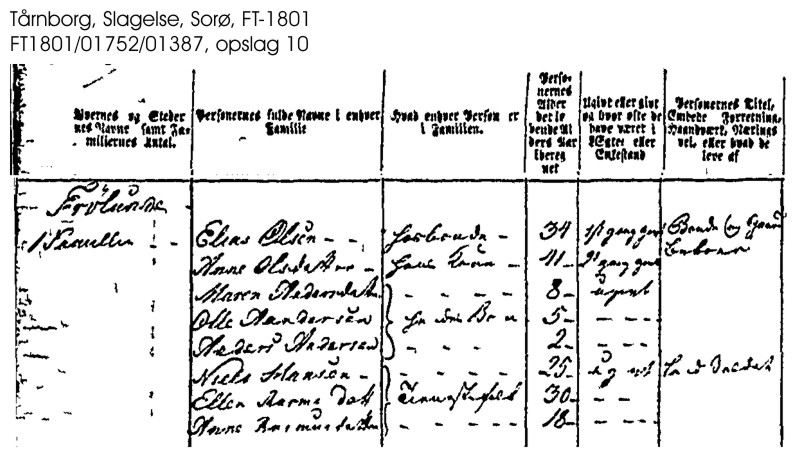 Tårnborg, Slagelse, Sorø, FT-1801
FT1801/01752/01387, opslag 10
Byernes og Steder
nes Navne samt Fa
miliernes Antal.
Personernes fulde Navne i enhver
Familie
Hvad enhver Person er
i Familien.
Perso-
nernes
Alder
det lø
bende Al
ders Aar
ibereg
net
Ugivt eller givt
og hvor ofte de
have været i
Ægte, eller
Enkestand
Personernes Titel,
Embede Forretning,
Haandværk, Nærings
vei, eller hvad de
leve af
Frölunde
1 Familie
Elias Olsen - - Hosbonde - 34 1st gang givt Bonde og Gaard
Anne Olsdatter - Hans Kone - 41 - 2t gang givt Beboer
Maren Andersdatter - - - - 8 - ugivt
Olle Andersen 5 - - - -
Anders Andersen - - - 2 - - - -
Niels Hansen - - - - - 25 - ugivt
Ellen Tienestefolk 30 - - -
Anne Rasmusdatter - - - - - 18 - - - -